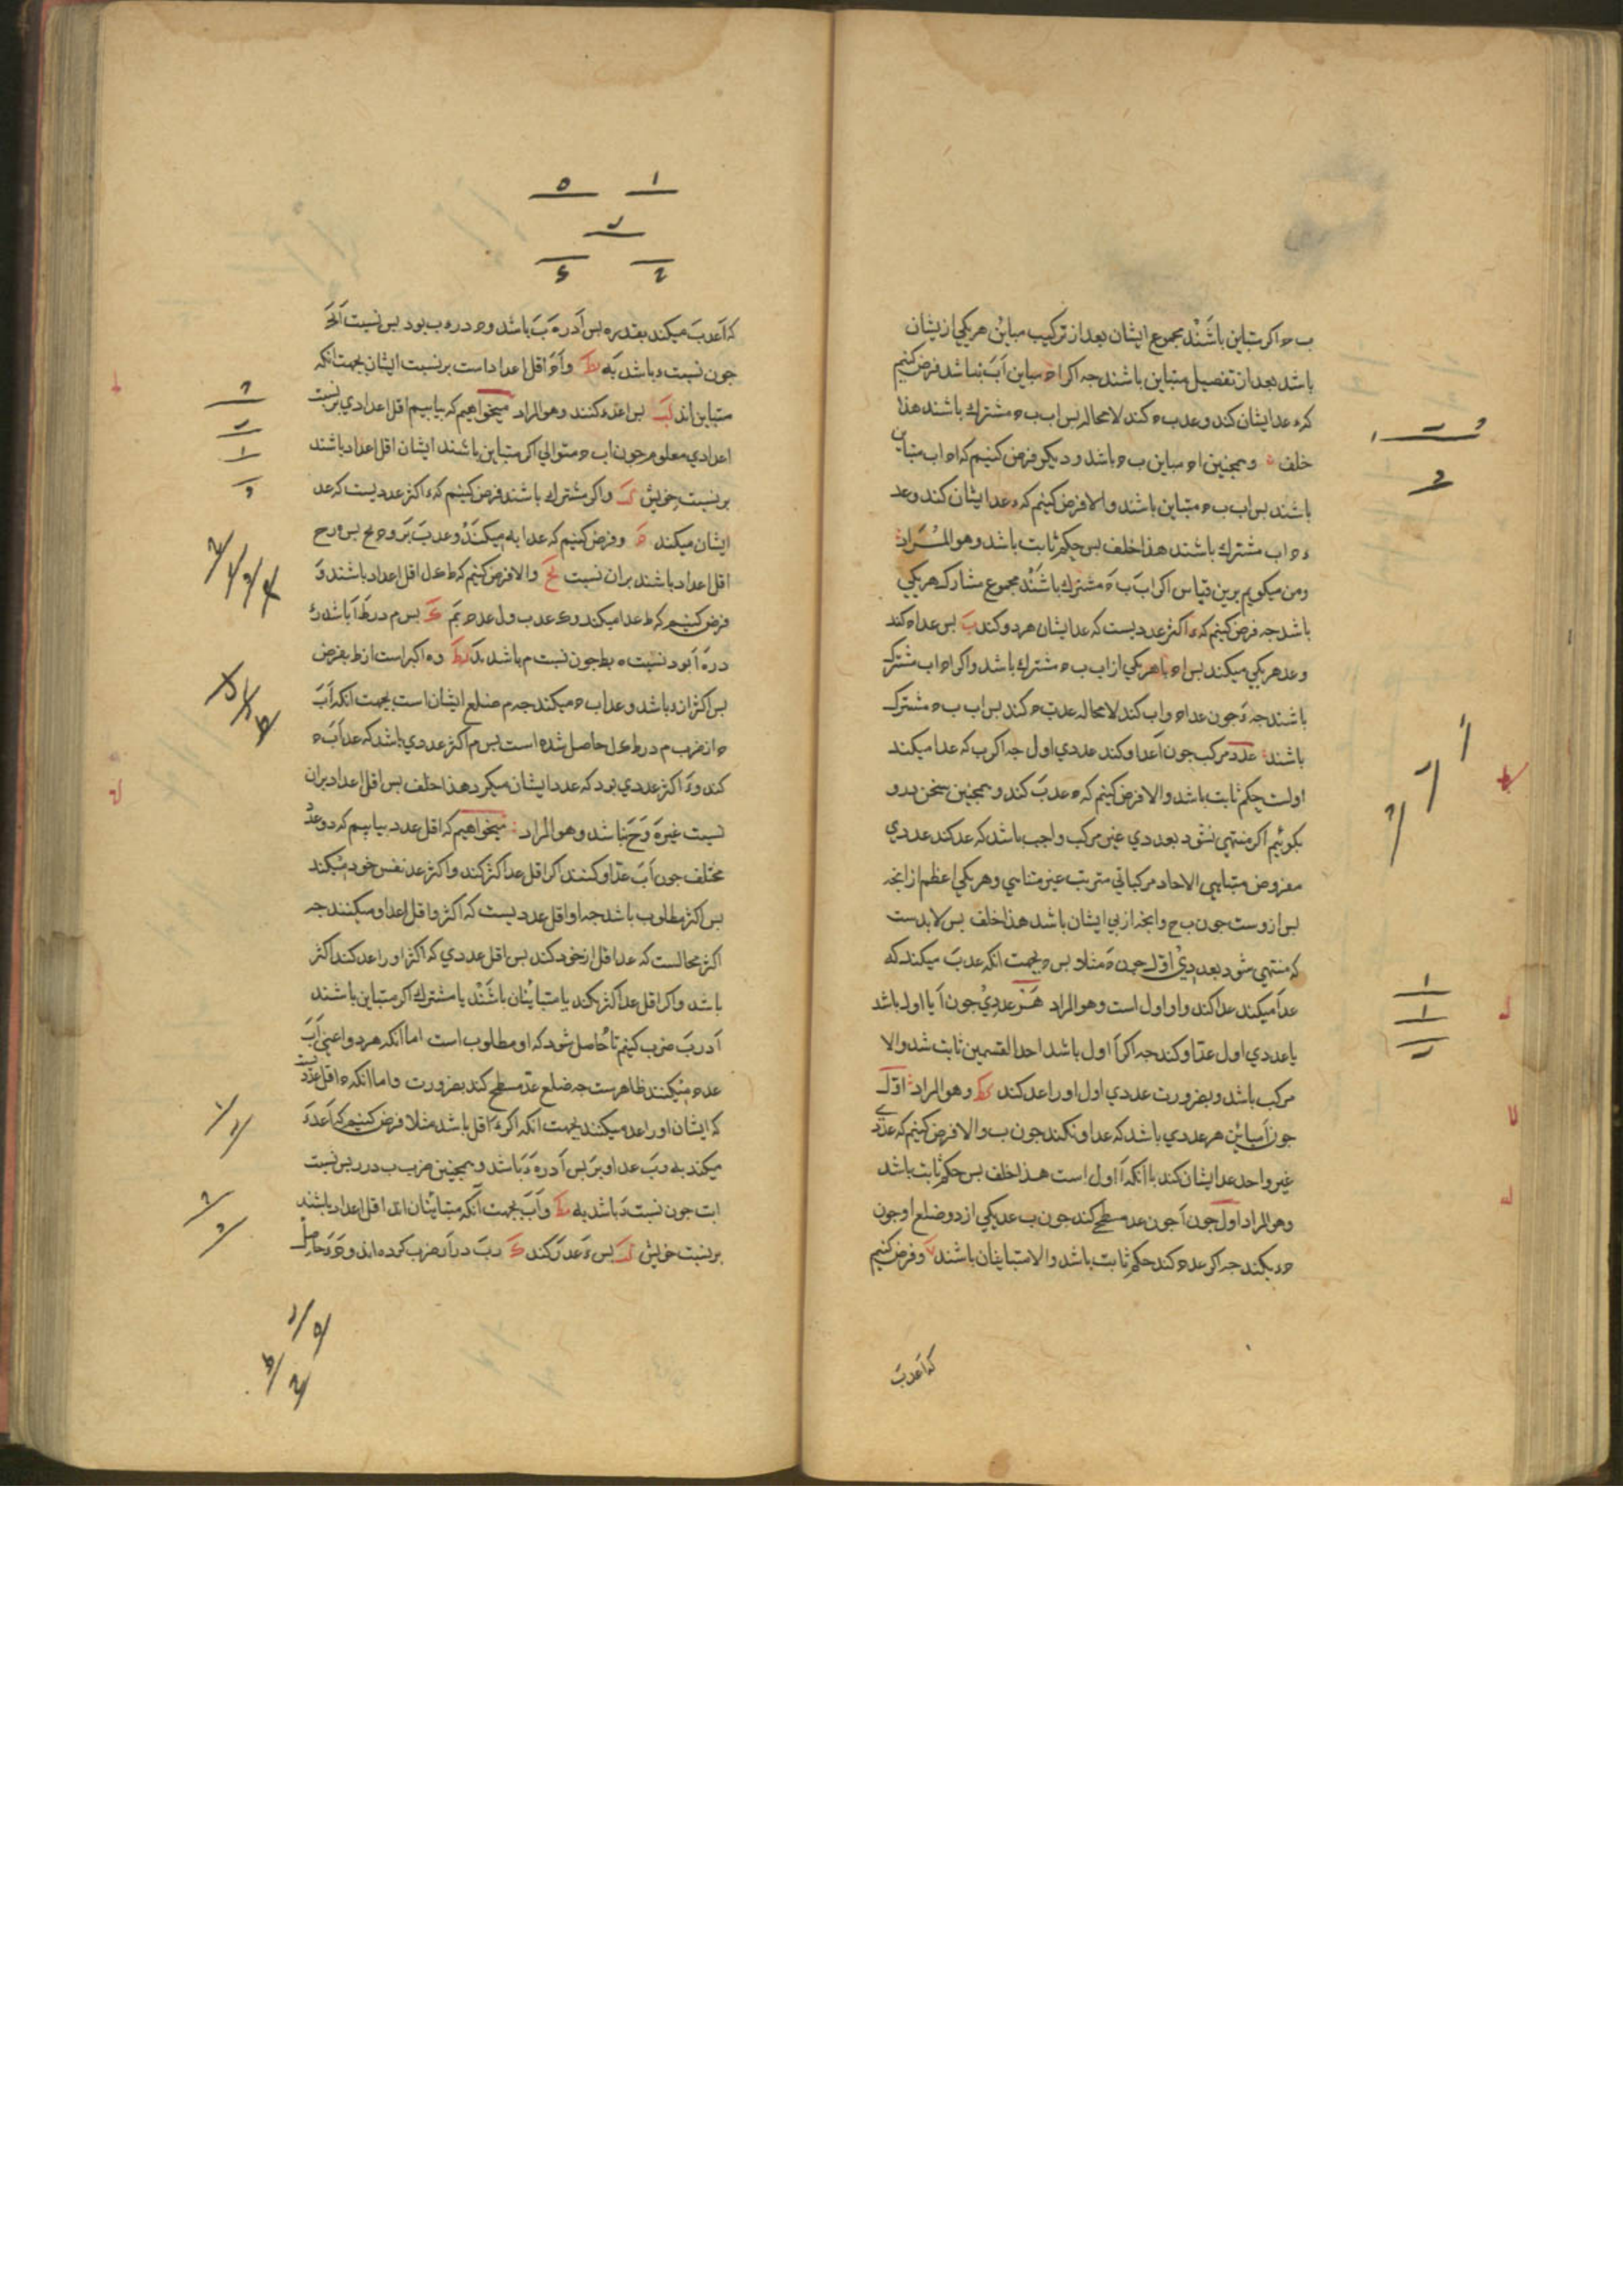 ب ح اكر متباين باشند مجموع ايشان بعد از تركيب مباين هر يكي از يشان
باشد بعد از تفصيل متباين باشند جه اكر اح مباين اب نباشد فرض كنيم
كه ء عد ايشان كند و عد ب ح كند لا محاله بس اب ب ح مشترك باشند هذا
خلف و همجنين اح مباين ب ح باشد و ديكر فرض كنيم كه اح اب متباين
باشند بس اب ب ح متباين باشند و الا فرض كنيم كه ء عد ايشان كند و عد
ح اب مشترك باشند هذا خلف بس حكم ثابت باشد و هو المراد
و من ميكويم برين قياس اكر اب ب ح مشترك باشند مجموع مشارك هر يكي
باشد جه فرض كنيم كه ء اكثر عدديست كه عد ايشان هر دو كند بس عد اح كند
و عد هر يكي ميكند بس اح با هر يكي از اب ب ح مشترك باشد و اكر اح اب مشترك
باشند جه ء جون عد اح و اب كند لا محاله عد ب ح كند بس اب ب ح مشترك
باشند عدد مركب جون ا عد او كند عددي اول جه اكر ب كه عد ا ميكند
اولست حكم ثابت باشد و الا فرض كنيم كه ح عد ب كند و همجنين سخن بدو
بكوئيم اكر منتهي نشود بعددي غير مركب واجب باشد كه عد كند عددي
مفروض متناهي الاحاد مركباتي مترتب غير متناهي و هر يكي اعظم از انجه
بس ازوست جون ب ح و انجه از بي ايشان باشد هذا خلف بس لا بدست
كه منتهي شود بعددي اول جون ح مثلا و بس ح بجهت انكه عد ب ميكند كه
عد ا ميكند عد ا كند و او اول است و هو المراد هر عددي جون ا يا اول باشد
يا عددي اول عد او كند جه اكر ا اول باشد احد القسمين ثابت شد و الا
مركب باشد و بضرورت عددي اول او را عد كند و هو المراد اول
جون ا مباين هر عددي باشد كه عد او نكند جون ب و الا فرض كنيم كه عددي
غير واحد عد ايشان كند با انكه ا اول است هذا خلف بس حكم ثابت باشد
و هو المراد اول جون ا جون عد مسطح كند جون ب عد يكي از دو ضلع او جون
ح ء بكند جه اكر عد ح كند حكم ثابت باشد و الا متباينان باشند و فرض كنيم
كه ا عد ب
كه ا عد ب ميكند بقدر ه بس ا در ه ب باشد و ح در ء ب بود بس نسبت ا بح
جون نسبت ء باشد به ه و ا ح اقل اعداداست بر نسبت ايشان بجهت انكه
متباين اند بس ا عد ء كند و هو المراد ميخواهيم كه بيابيم اقل اعدادي بر نسبت
اعدادي معلوم جون اب ح متوالي اكر متباين باشند ايشان اقل اعداد باشند
بر نسبت خويش و اكر مشترك باشند فرض كنيم كه ء اكثر عدديست كه عد
ايشان ميكند و فرض كنيم كه عد ا به ه ميكند و عد ب بر و ح بح بس ه ر ح
اقل اعداد باشند بر ان نسبت و الا فرض كنيم كه ط ك ل اقل اعداد باشند و
فرض كنيم كه ط عد ا ميكند و ك عد ب و ل عد ح بم بس م در ط ا باشد و ء
در ه ا بود نسبت ه بط جون نسبت م باشد بء و ه اكبر است از ط بفرض
بس م اكثر از ء باشد و عد اب ح ميكند جه م ضلع ايشان است بجهت انكه اب
ح از ضرب م در ط ك ل حاصل شده است بس م اكثر عددي باشد كه عد اب ح
كند و ء اكثر عددي بود كه عدد ايشان ميكرد هذا خلف بس اقل اعداد بران
نسبت غير ه ر ح نباشد و هو المراد ميخواهيم كه اقل عدد بيابيم كه دو عدد
مختلف جون اب عد او كنند اكر اقل عد اكثر كند و اكثر عد نفس خود ميكند
بس اكثر مطلوب باشد جه او اقل عدديست كه اكثر و اقل عد او ميكنند جه
اكثر محالست كه عد اقل از خود كند بس اقل عددي كه اكثر او را عد كند اكثر
باشد و اكر اقل عد اكثر نكند يا متباينان باشند يا مشترك اكر متباين باشند
ا در ب ضرب كنيم تا ح حاصل شود كه او مطلوب است اما انكه هر دو اعني اب
عد ح ميكنند ظاهرست جه ضلع عد مسطح كند بضرورت و اما انكه ح اقل عدديست
كه ايشان او را عد ميكنند بجهت انكه اكر ء اقل باشد مثلا فرض كنيم كه ا عد ء
ميكند به ه و ب عد او بر بس ا در ه ء باشد و همجنين ضرب ب در ر بس نسبت
اب جون نسبت ر باشد به ه و اب بجهت انكه متباينان اند اقل اعداد باشند
بر نسبت خويش بس ء عد ر كند و ب در ا ر ضرب كرده اند و ح ء حاصل